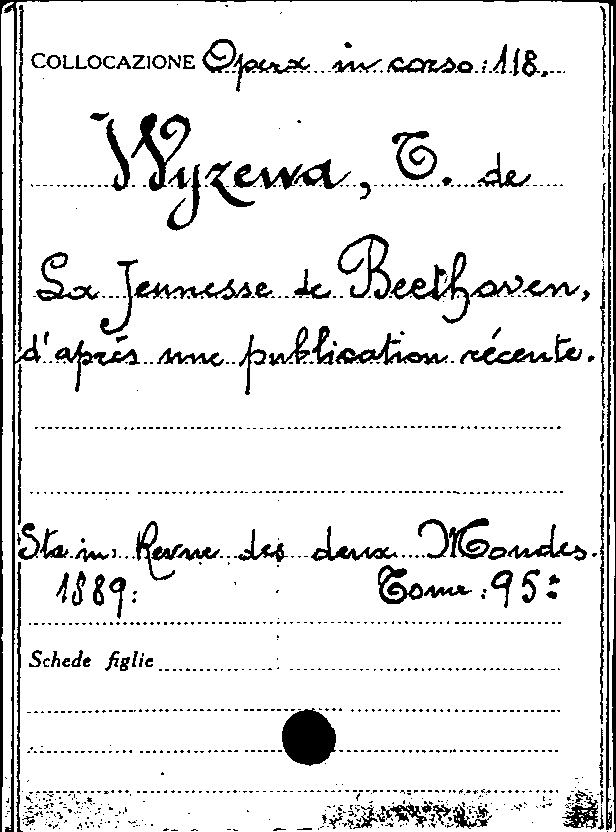 COLLOCAZIONE Opera in corso: 118.
Wyzewa, T. de
La Jeunesse de Beethoven,
d'après une publication récente.
Sta in: Revue des deux Mondes.
1889: Tome: 95:
Schede figlie